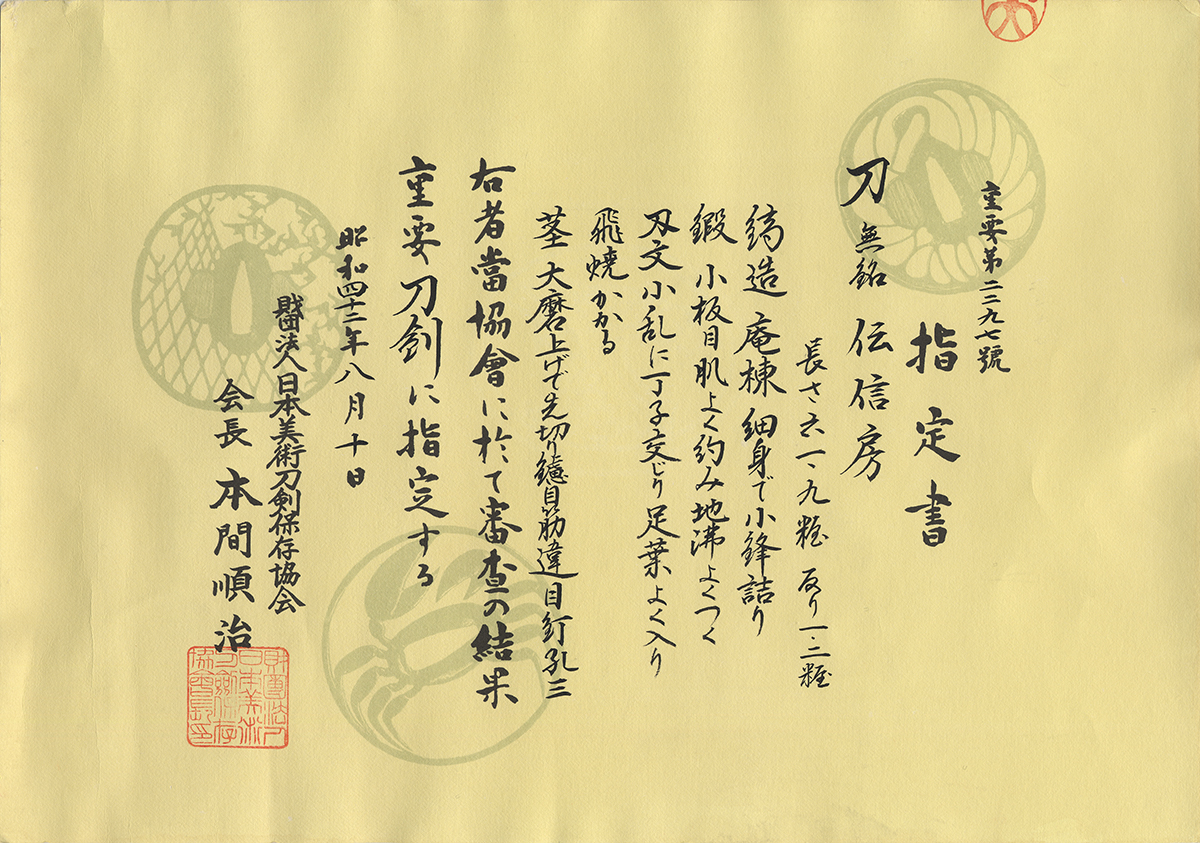 重要第二二九七號
指定書
刀 無銘 伝信房
長さ六一・九糎 反り一・二糎
鎬造 庵棟 細身で小鋒詰り
鍛 小板目肌よく約み地沸よくつく
刄文小乱に丁子交じり足葉よく入り
飛焼かかる
茎 大磨上げで先切り鑢目筋違目釘孔三
右者當協會に於て審査の結果
重要刀剣に指定する
昭和四十二年八月十日
財団法人日本美術刀剣保存協会
会長 本間順治
財團法人日本美術刀劍保存協會長印